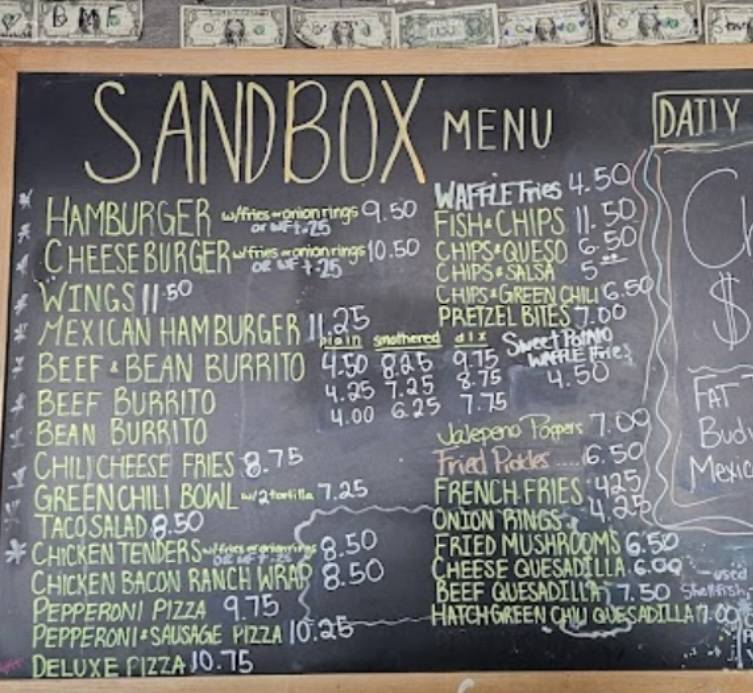 BMF
SANDBOX MENU
HAMBURGER w/fries or onion rings 9.50
or WF +.25
CHEESEBURGER w/fries or onion rings 10.50
or WF +.25
WINGS 11.50
MEXICAN HAMBURGER 11.25
plain smothered dlx
BEEF & BEAN BURRITO 4.50 8.25 9.75
BEEF BURRITO 4.25 7.25 8.75
BEAN BURRITO 4.00 6.25 7.75
CHILI CHEESE FRIES 8.75
GREEN CHILI BOWL w/2 tortilla 7.25
TACO SALAD 8.50
CHICKEN TENDERS w/fries or onion rings 8.50
OR WF +.25
CHICKEN BACON RANCH WRAP 8.50
PEPPERONI PIZZA 9.75
PEPPERONI & SAUSAGE PIZZA 10.25
DELUXE PIZZA 10.75
WAFFLE Fries 4.50
FISH & CHIPS 11.50
CHIPS & QUESO 6.50
CHIPS & SALSA 5.00
CHIPS & GREEN CHILI 6.50
PRETZEL BITES 7.00
Sweet Potato
WAFFLE Fries
4.50
Jalepeno Poppers 7.00
Fried Pickles .... 6.50
FRENCH FRIES 4.25
ONION RINGS 4.25
FRIED MUSHROOMS 6.50
CHEESE QUESADILLA 6.00
BEEF QUESADILLA 7.50
HATCH GREEN CHILI QUESADILLA 7.00
DAILY
Ch
$
FAT T
Budw
Mexic
used
Shellfish